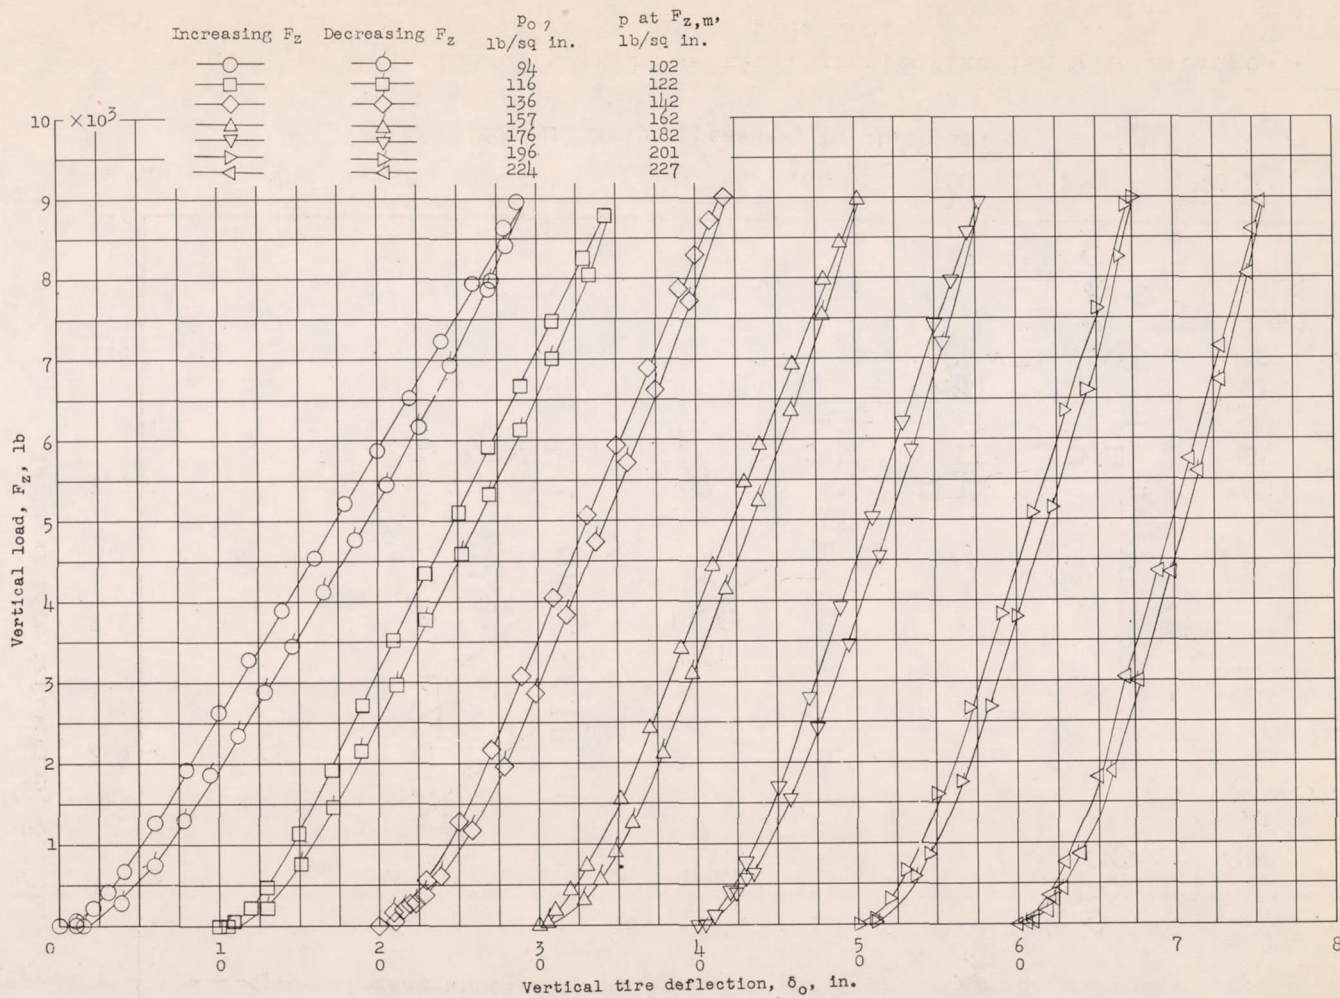 Increasing Fz Decreasing Fz po, lb/sq in. p at Fz,m, lb/sq in.
94 102
116 122
136 142
157 162
176 182
196 201
224 227
10 ×10³
9
8
7
6
5
4
3
2
1
0 1 2 3 4 5 6 7 8
0 0 0 0 0 0
Vertical load, Fz, lb
Vertical tire deflection, δo, in.